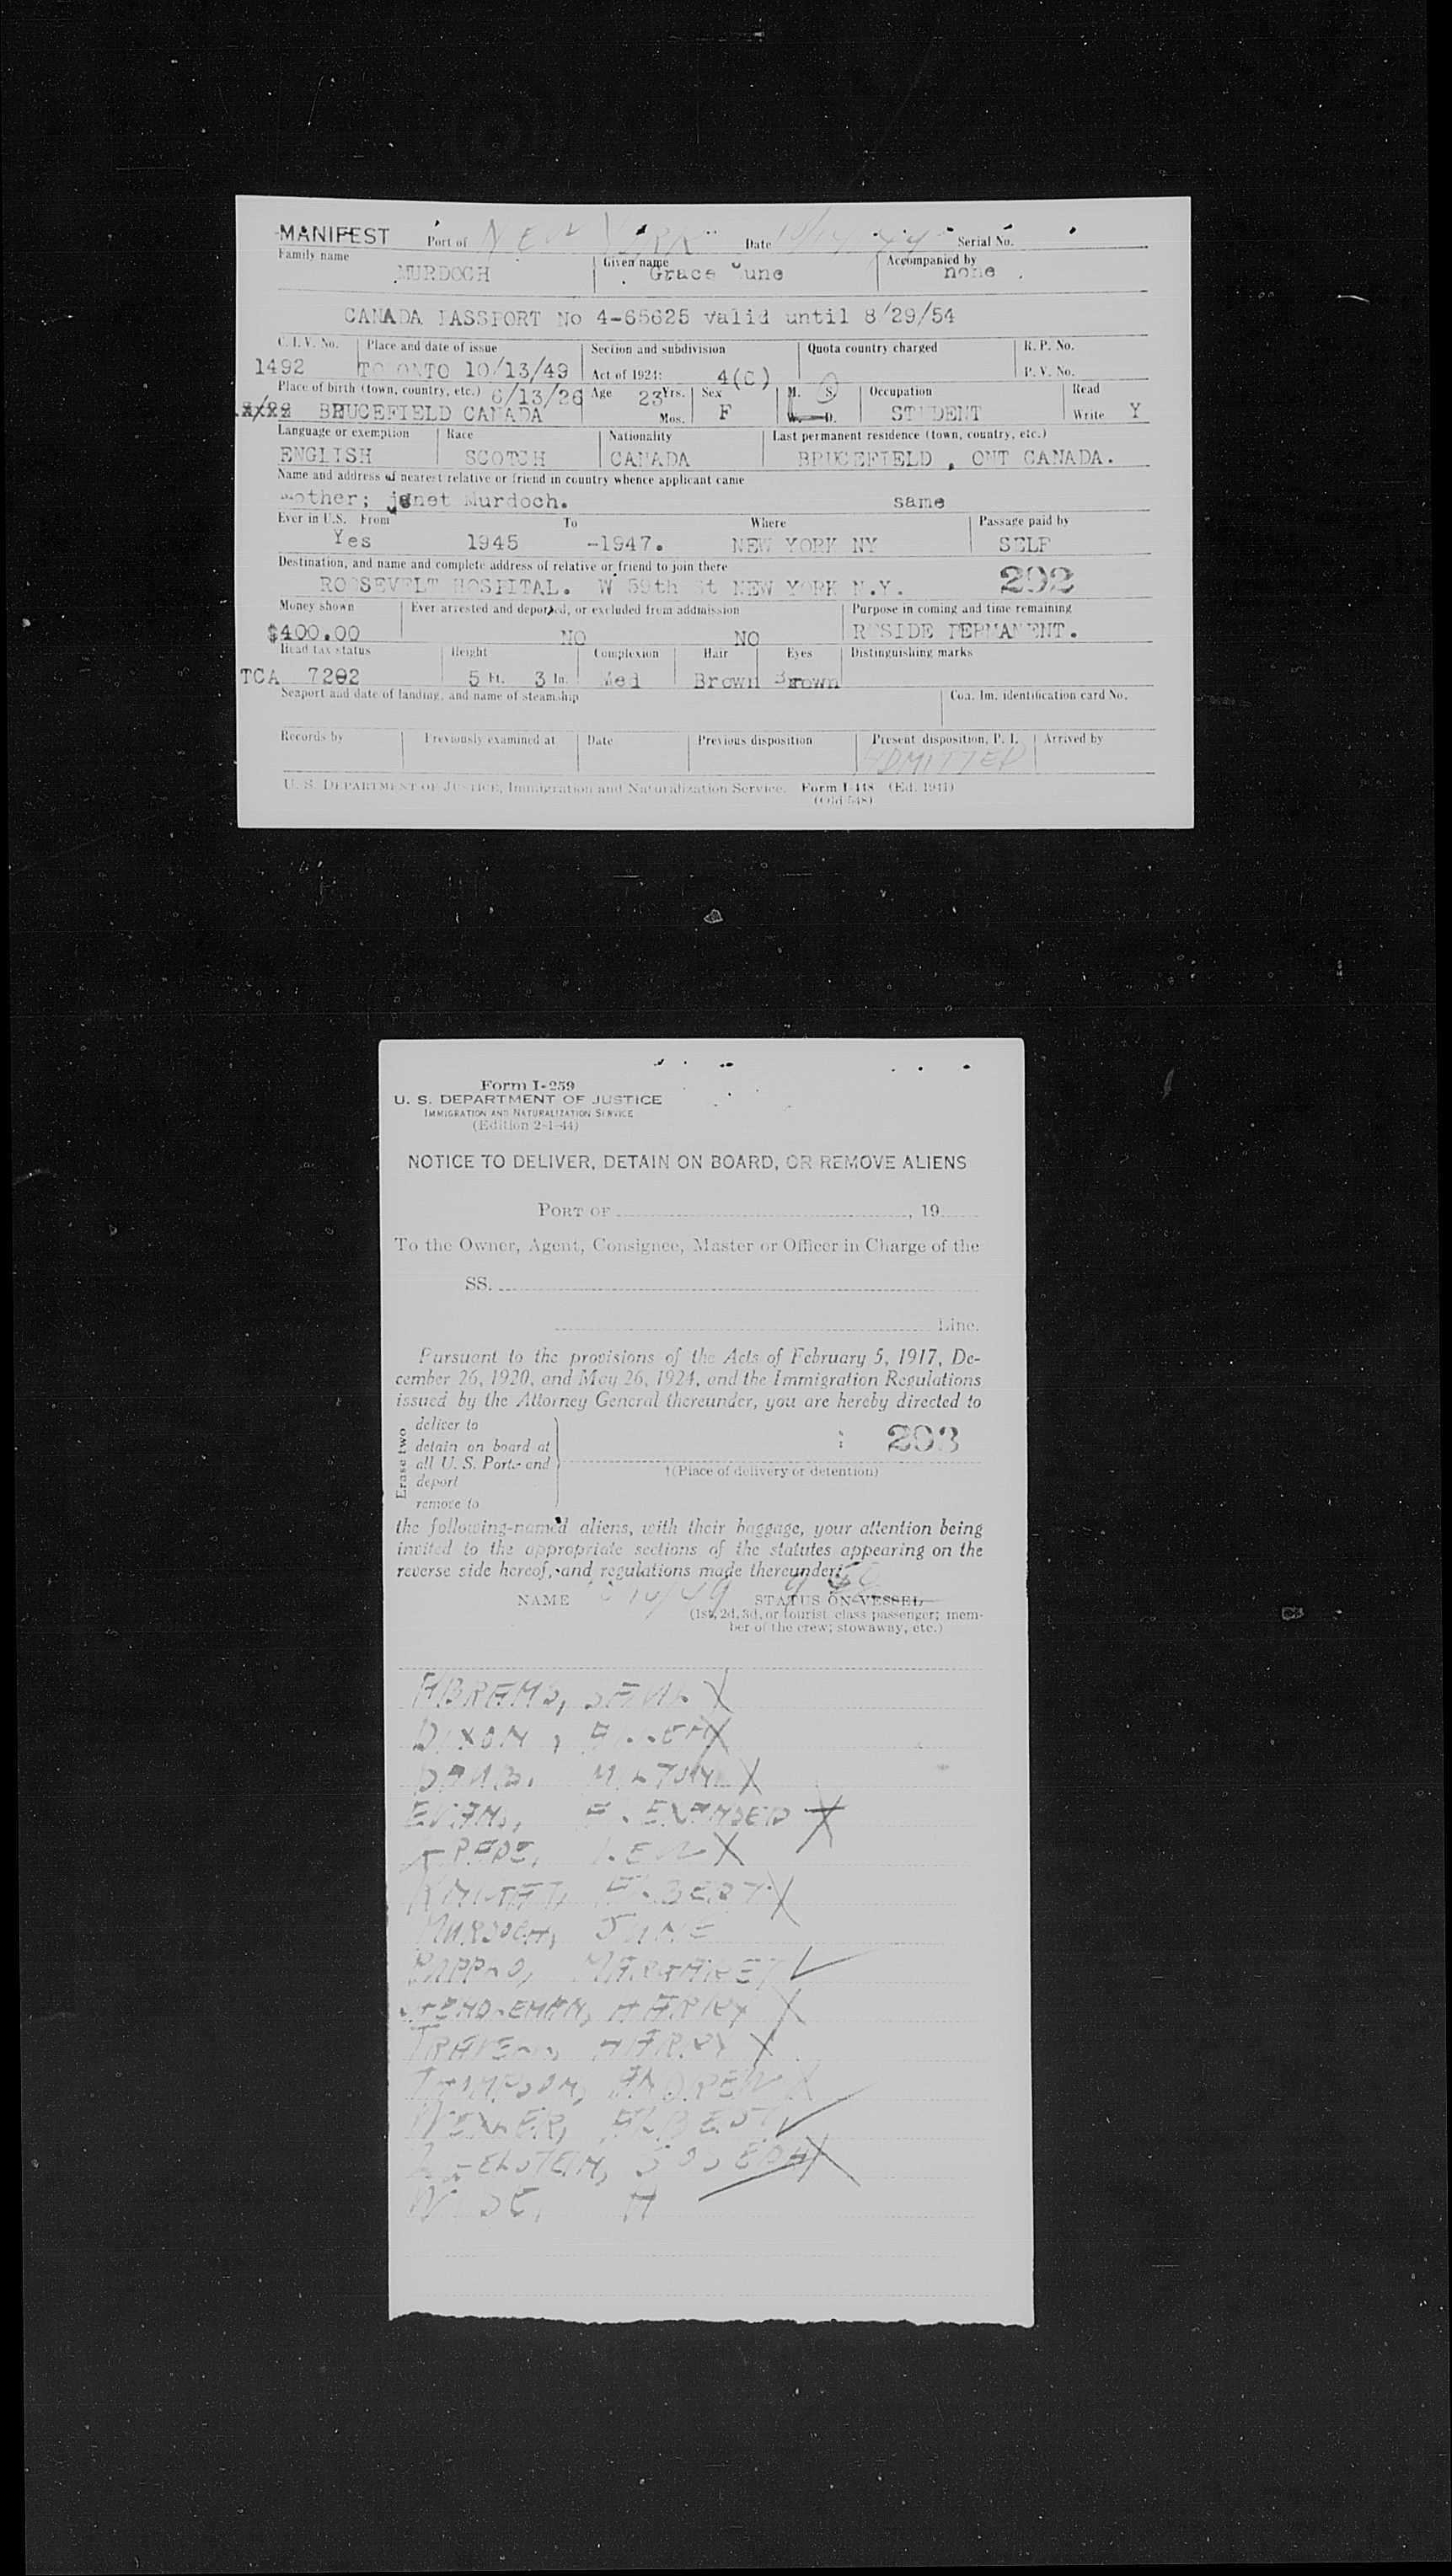 MANIFEST Port of NEW YORK Date 10/14/49 Serial No.
Family name MURDOCH Given name Grace June Accompanied by none
CANADA PASSPORT No 4-65625 valid until 8/29/54
C. I. V. No. Place and date of issue Section and subdivision Quota country charged R. P. No.
1492 TORONTO 10/13/49 Act of 1924: 4(C) P. V. No.
Place of birth (town, country, etc.) 6/13/26 Age 23 Yrs. Sex M. S. Occupation Read
BRUCEFIELD CANADA Mos. F W. D. STUDENT Write Y
Language or exemption Race Nationality Last permanent residence (town, country, etc.)
ENGLISH SCOTCH CANADA BRUCEFIELD , ONT CANADA.
Name and address of nearest relative or friend in country whence applicant came
Mother; janet Murdoch. same
Ever in U.S. From To Where Passage paid by
Yes 1945 -1947. NEW YORK NY SELF
Destination, and name and complete address of relative or friend to join there
ROOSEVELT HOSPITAL. W 59th St NEW YORK N.Y. 292
Money shown Ever arrested and deported, or excluded from admission Purpose in coming and time remaining
$400.00 NO NO RESIDE PERMANENT.
Head tax status Height Complexion Hair Eyes Distinguishing marks
TCA 7202 5 Ft. 3 In. Med Brown Brown
Seaport and date of landing, and name of steamship Coa. Im. identification card No.
Records by Previously examined at Date Previous disposition Present disposition, P. I. Arrived by
ADMITTED
U. S. DEPARTMENT OF JUSTICE, Immigration and Naturalization Service. Form I-448 (Ed. 1941)
(Old 548)
Form I-259
U. S. DEPARTMENT OF JUSTICE
IMMIGRATION AND NATURALIZATION SERVICE
(Edition 2-1-44)
NOTICE TO DELIVER, DETAIN ON BOARD, OR REMOVE ALIENS
PORT OF , 19
To the Owner, Agent, Consignee, Master or Officer in Charge of the
SS.
Line.
Pursuant to the provisions of the Acts of February 5, 1917, De-
cember 26, 1920, and May 26, 1924, and the Immigration Regulations
issued by the Attorney General thereunder, you are hereby directed to
Erase two
deliver to
detain on board at : 293
all U. S. Ports and
deport †(Place of delivery or detention)
remove to
the following-named aliens, with their baggage, your attention being
invited to the appropriate sections of the statutes appearing on the
reverse side hereof, and regulations made thereunder:
NAME STATUS ON VESSEL
(1st, 2d, 3d, or tourist class passenger; mem-
ber of the crew; stowaway, etc.)
ABRAMS, SAUL X
DIXON, X
MILTON X
EVANS, ALEXANDER X
LEW X
ALBERT X
MURDOCH, JUNE
MARGARET ✓
HARRY X
HARRY X
THOMPSON, ANDREW X
ALBERT ✓
JOSEPH X
H